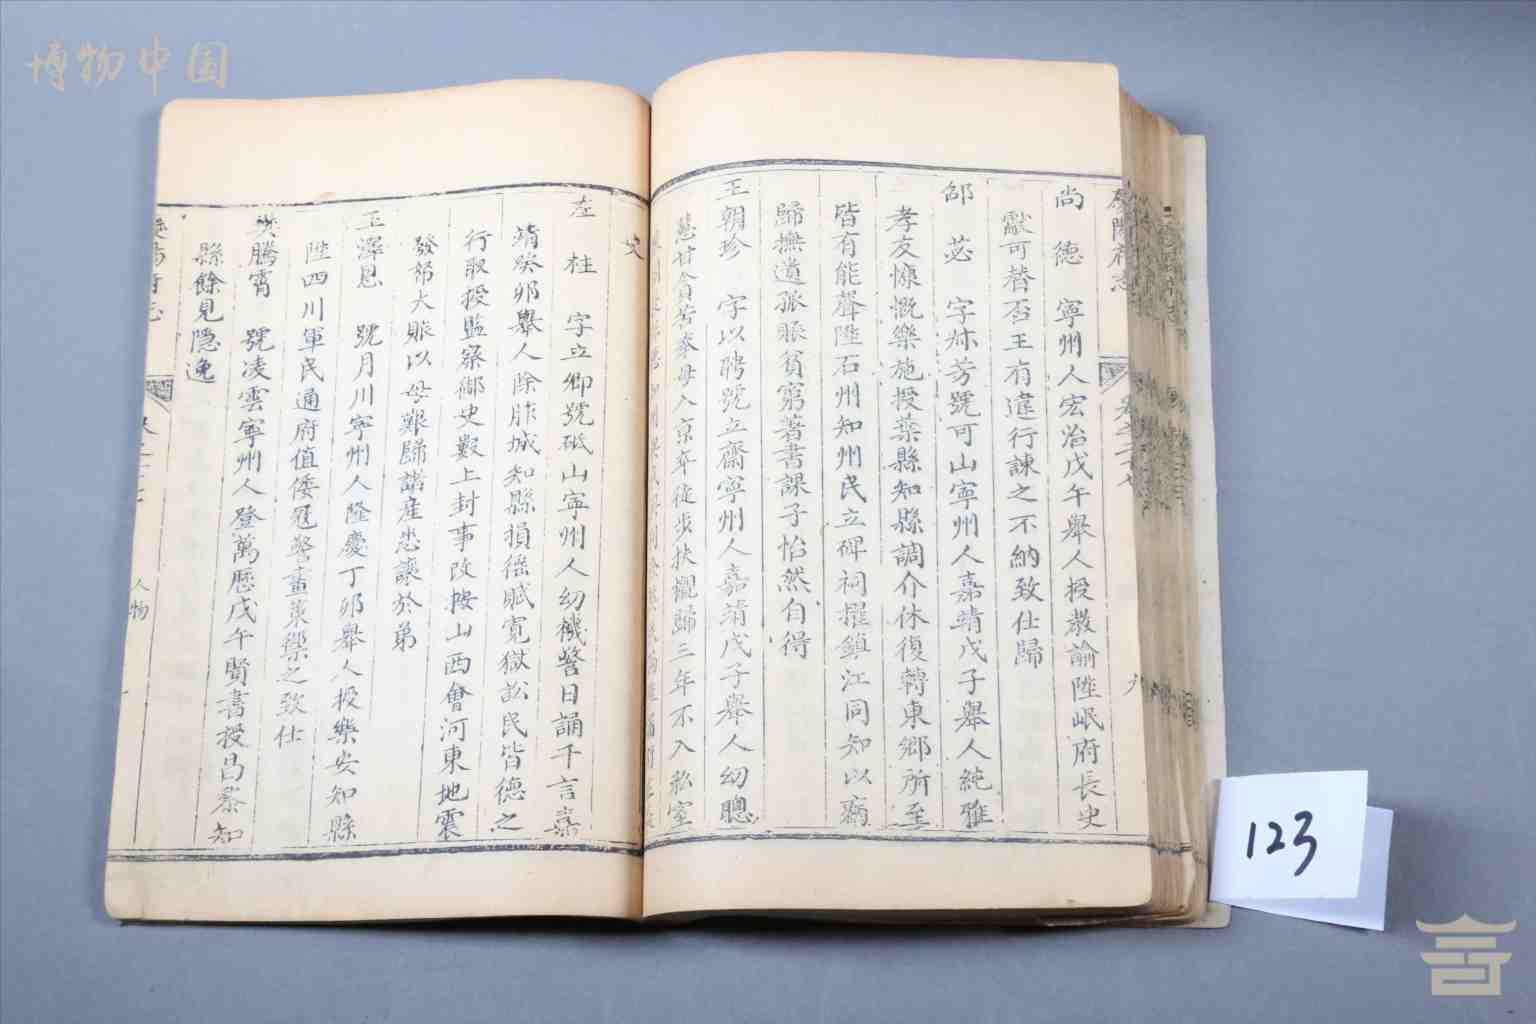 博物中国
慶陽府志
尚德 寧州人宏治戊午舉人授教諭陞岷府長史
獻可替否王有違行諫之不納致仕歸
邰苾 字孏芳號可山寧州人嘉靖戊子舉人純雅
孝友慷慨樂施授葉縣知縣調介休復轉東鄉所至
皆有能聲陞石州知州民立碑祠擢鎮江同知以病
歸撫遺孤賑貧窮著書課子怡然自得
王朝珍 字以聘號立齋寧州人嘉靖戊子舉人幼聰
慧甘貧苦奉母入京卒徒步扶櫬歸三年不入私室
左柱 字立鄉號砥山寧州人幼機警日誦千言嘉
靖癸卯舉人除胙城知縣損徭賦寬獄訟民皆德之
行取授監察御史數上封事改按山西會河東地震
發帑大賑以母艱歸諸產悉讓於弟
王澤恩 號月川寧州人隆慶丁卯舉人授樂安知縣
陞四川軍民通府值倭冦警畫策禦之致仕
騰霄 號凌雲寧州人登萬歷戊午賢書授昌黎知
縣餘見隱逸
人物
123